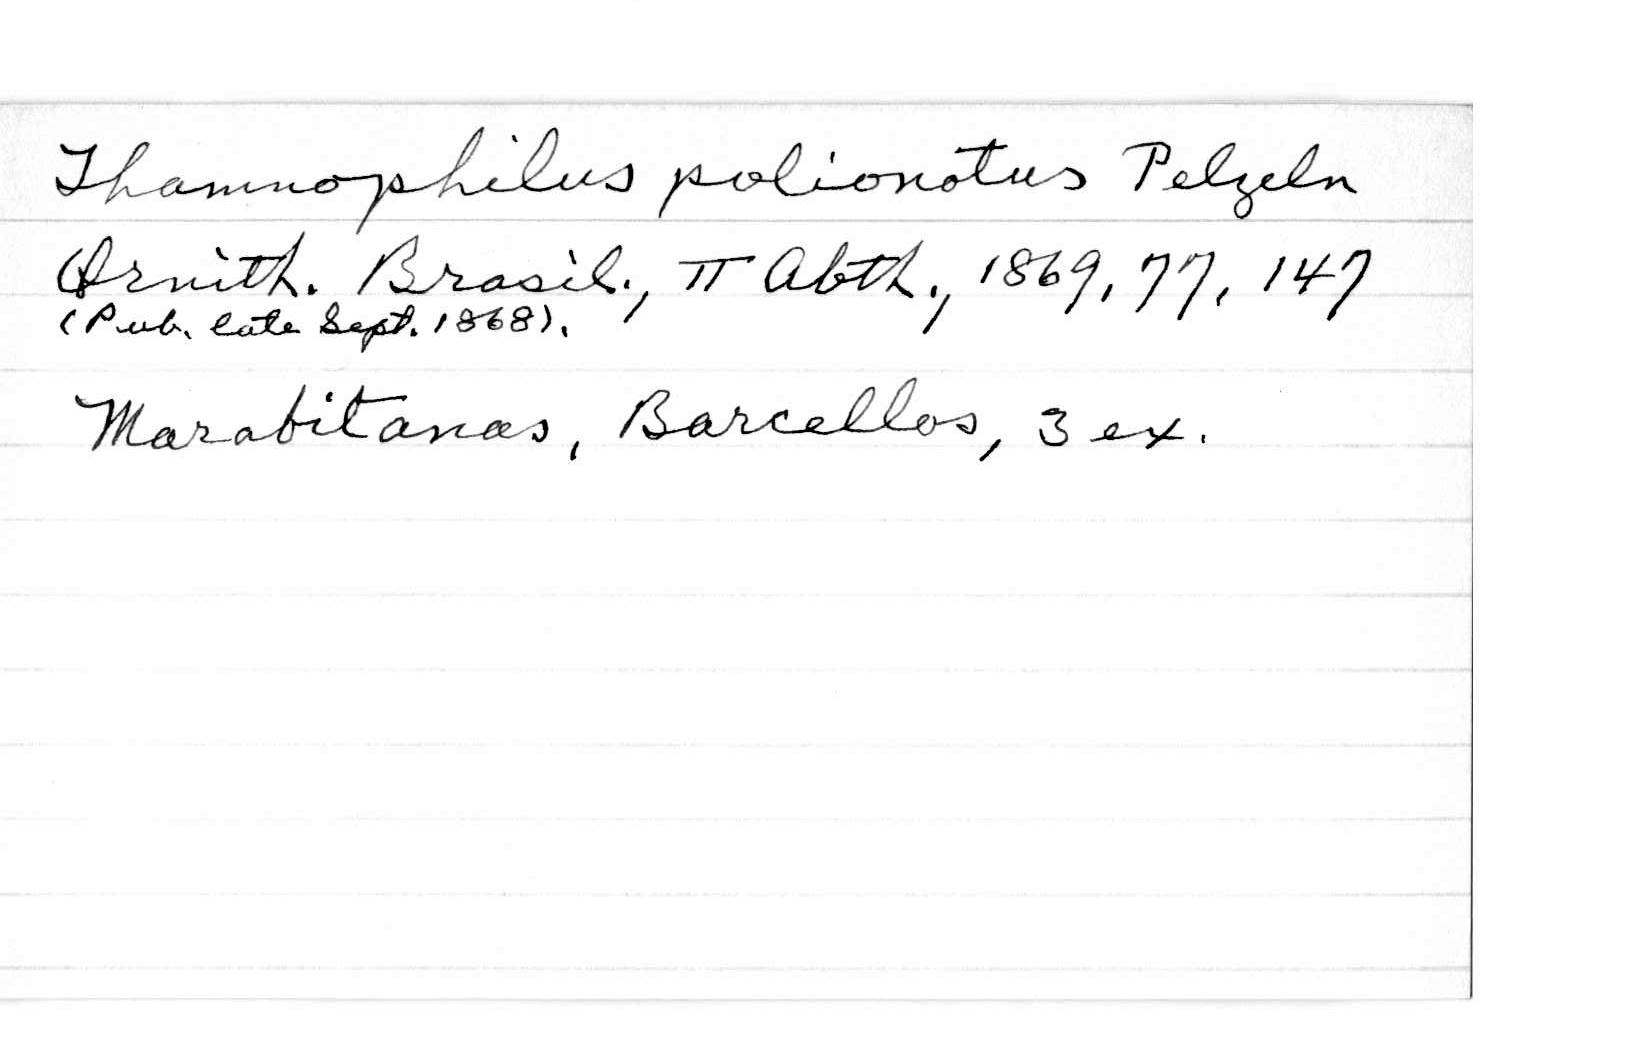 Thamnophilus polionotus Pelzeln
Ornith. Brasil., II Abth., 1869, 77, 147
(Pub. late Sept. 1868).
Marabitanas, Barcellos, 3 ex.